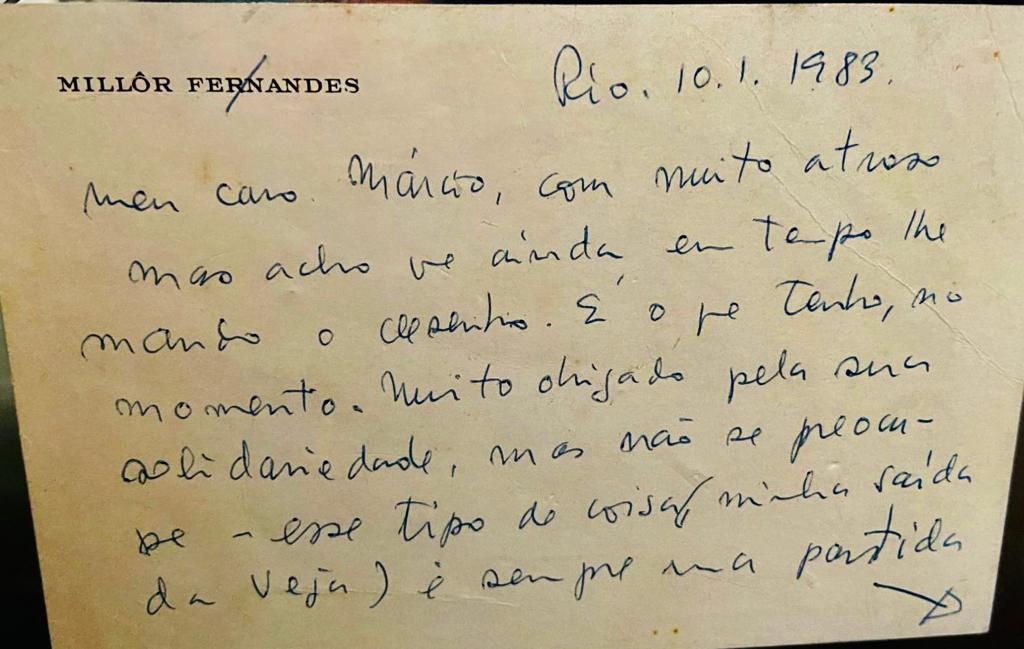 MILLÔR FERNANDES
Rio. 10.1.1983.
Meu caro Márcio, com muito atraso
mas acho que ainda em tempo lhe
mando o desenho. É o que tenho, no
momento. Muito obrigado pela sua
solidariedade, mas não se preocu-
pe – esse tipo de coisa (minha saída
da Veja) é sempre uma partida